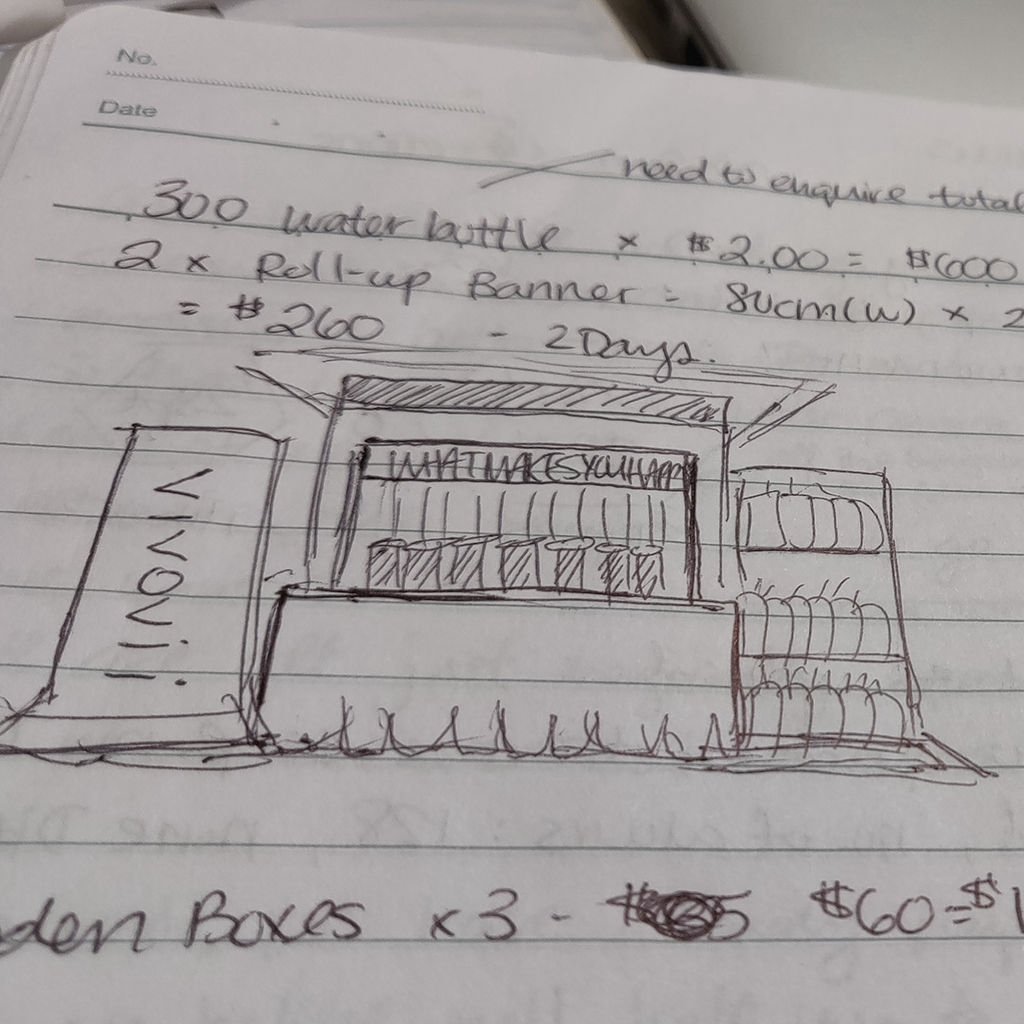 No.
Date
need to enquire total
300 water bottle × $2.00 = $600
2 × Roll-up Banner = 80cm(W) × 2
= $260 - 2 Days.
WHATMAKESYOUHAPP
VIVOVII
den Boxes × 3 - $60 = $1